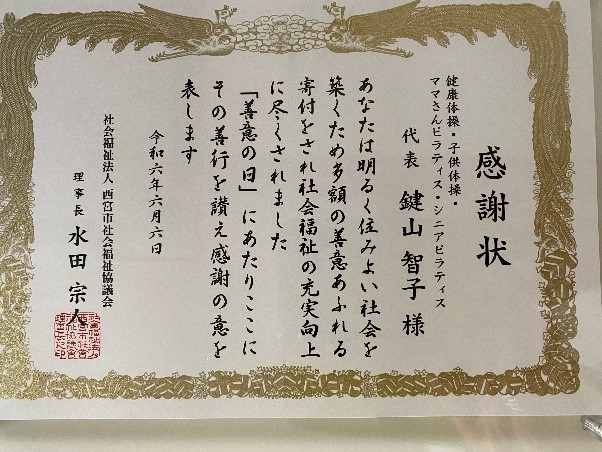 感謝状
健康体操・子供体操・
ママさんピラティス・シニアピラティス
代表 鍵山 智子 様
あなたは明るく住みよい社会を
築くため多額の善意あふれる
寄付をされ社会福祉の充実向上
に尽くされました
「善意の日」にあたりここに
その善行を讃え感謝の意を
表します
令和六年六月六日
社会福祉法人 西宮市社会福祉協議会
理事長 水田 宗人